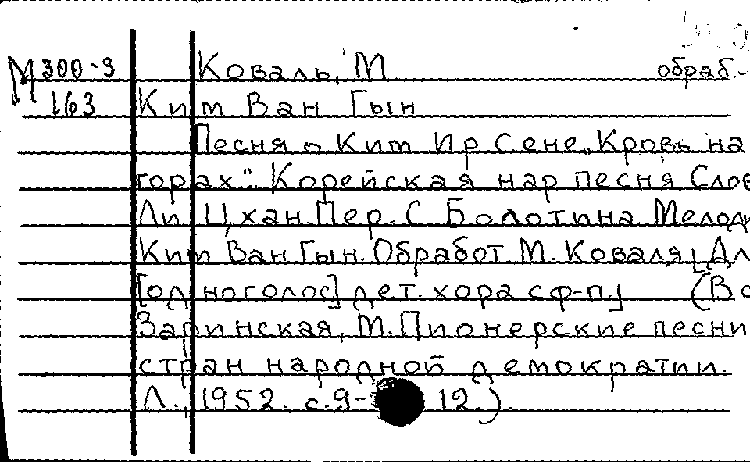 М 300-3 Коваль, М. обраб.
163 Ким Ван Гын
Песня о Ким Ир Сене „Кровь на
горах". Корейская нар песня Слов
Ли Цхан Пер. С. Болотина Мелод
Ким Ван Гын. Обработ М. Коваля, Дл
[одноголос] дет. хора с ф-п.] (В с
Заринская, М. Пионерские песни
стран народной демократии.
Л., 1952. с. 9- 12.)